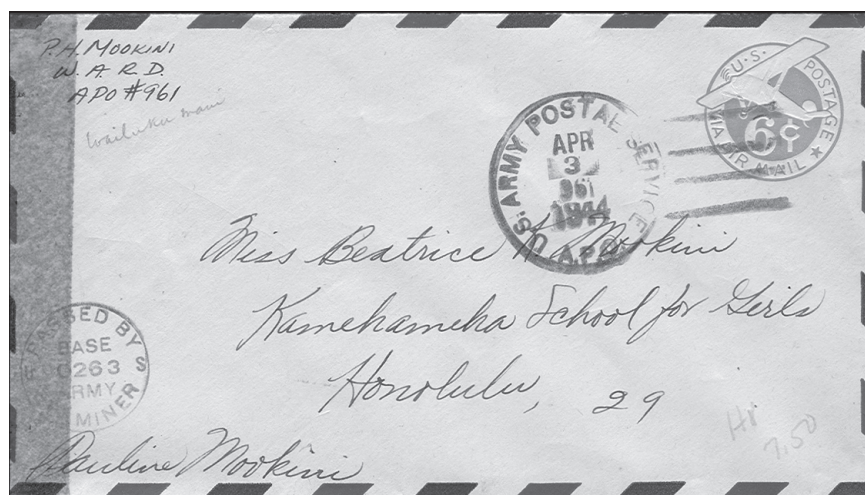 P.H. MOOKINI
W. A. R. D.
APO #961
Wailuku Maui
U.S. POSTAGE
VIA AIR MAIL
6¢
U.S. ARMY POSTAL SERVICE
APR
3
961
1944
A.P.O.
Miss Beatrice K. Mookini
Kamehameha School for Girls
Honolulu, 29
PASSED BY
BASE
0263
ARMY
MINER
S
Pauline Mookini
HI
7.50